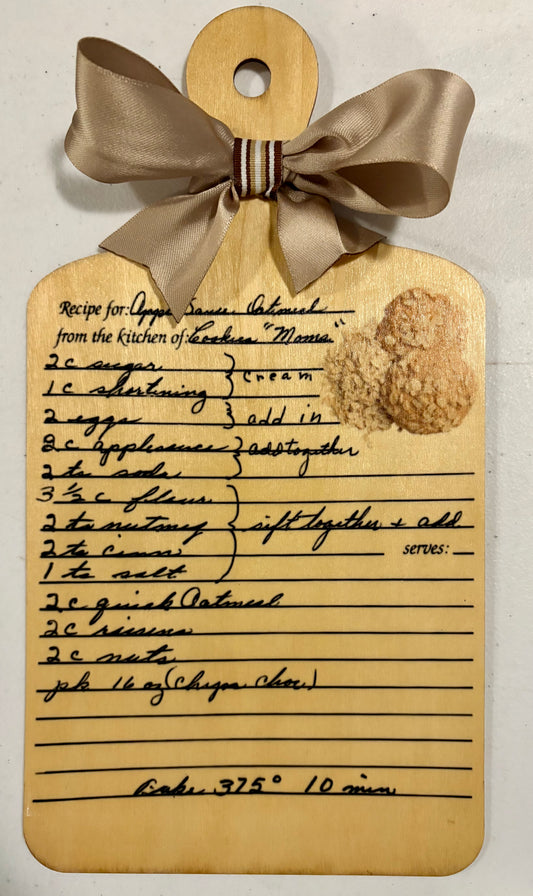 Recipe for: Apple Sauce Oatmeal
from the kitchen of: Cookies "Moms"
2 c sugar } cream
1 c shortining
2 eggs } add in
2 c applesauce } add together
2 ts soda
3 1/2 c flour
2 ts nutmeg } sift together + add
2 ts cinn serves:
1 ts salt
2 c quick Oatmeal
2 c raisens
2 c nuts
pk 16 oz (chips choc)
Bake 375° 10 min